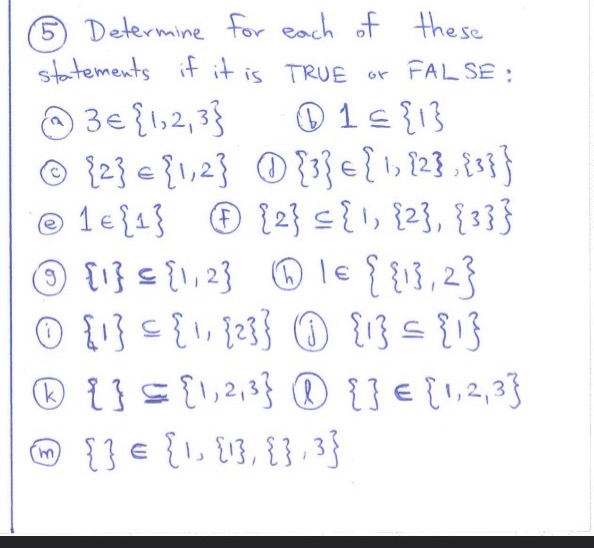 ⑤ Determine for each of these
statements if it is TRUE or FALSE :
ⓐ 3 ∈ {1,2,3} ⓑ 1 ⊆ {1}
ⓒ {2} ∈ {1,2} ⓓ {3} ∈ {1, {2}, {3}}
ⓔ 1 ∈ {1} ⓕ {2} ⊆ {1, {2}, {3}}
ⓖ {1} ⊆ {1,2} ⓗ 1 ∈ {{1}, 2}
ⓘ {1} ⊆ {1, {2}} ⓙ {1} ⊆ {1}
ⓚ { } ⊆ {1,2,3} ⓛ { } ∈ {1,2,3}
ⓜ { } ∈ {1, {1}, { }, 3}